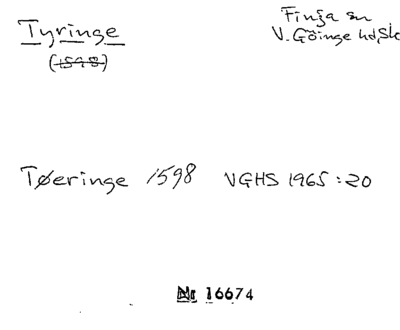 Tyringe
(1598)
Finja sn
V. Göinge hd, Sk
Tøeringe 1598 VGHS 1965:20
Nr 16674